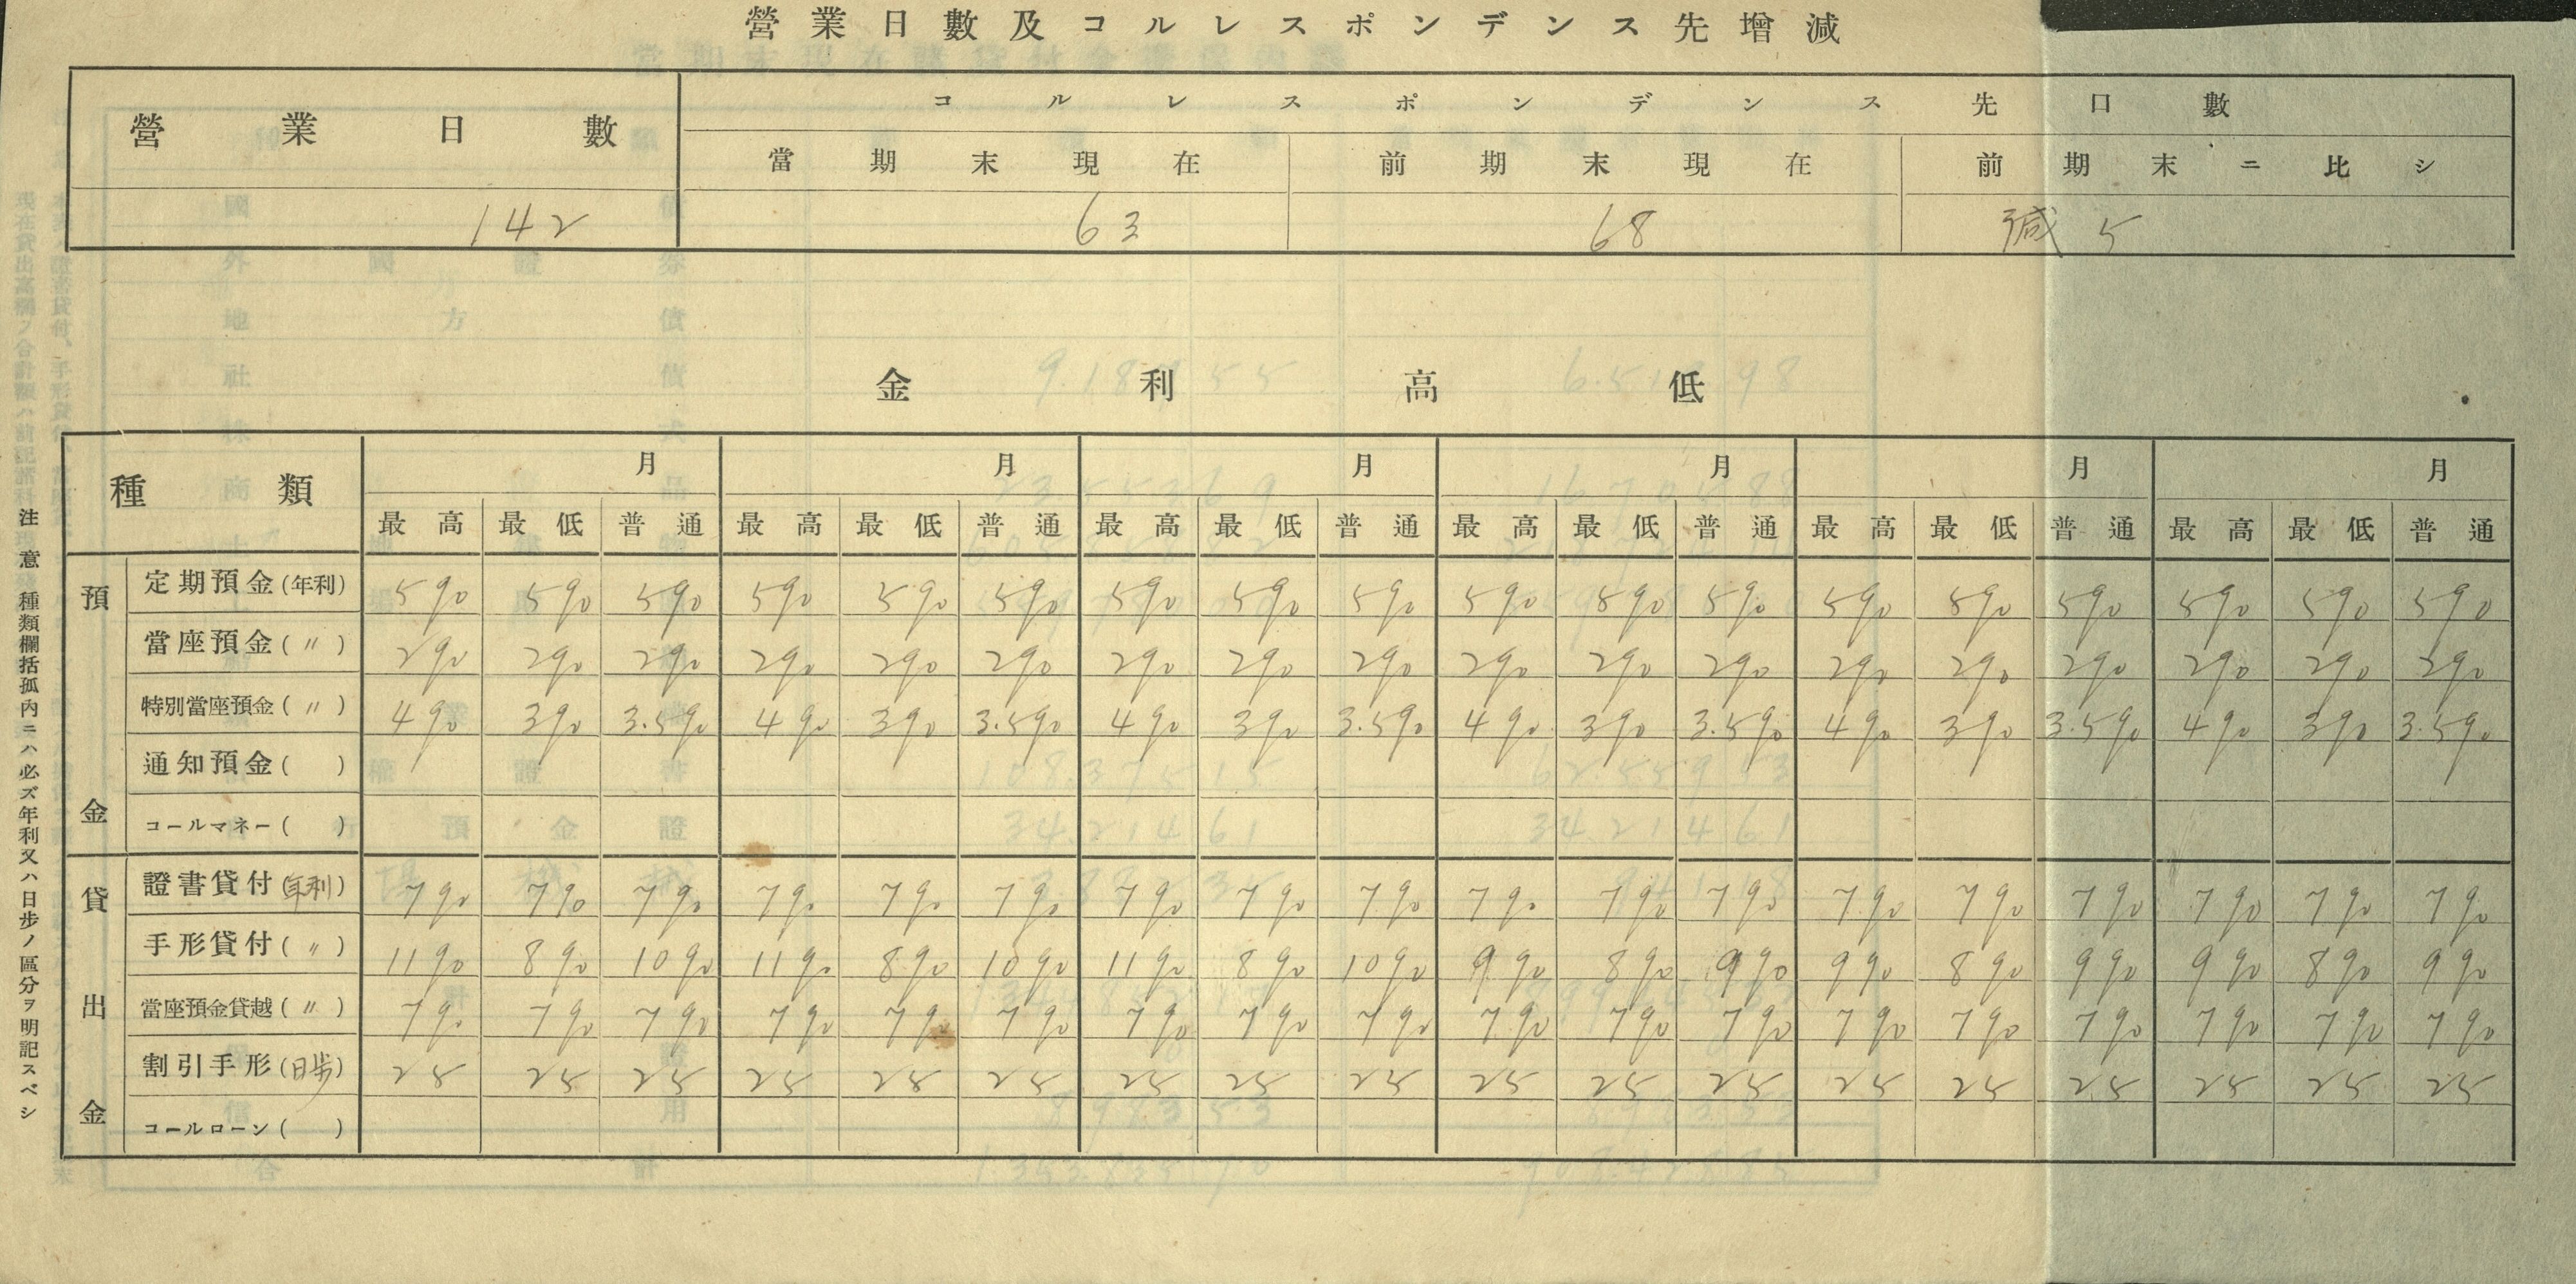 營業日數及コルレスポンデンス先增減
營業日數 コルレスポンデンス先口數
當期末現在 前期末現在 前期末ニ比シ
142 63 68 減 5
金利高低
種類 月 月 月 月 月 月
最高 最低 普通 最高 最低 普通 最高 最低 普通 最高 最低 普通 最高 最低 普通 最高 最低 普通
預金
定期預金(年利) 5% 5% 5% 5% 5% 5% 5% 5% 5% 5% 5% 5% 5% 5% 5% 5% 5% 5%
當座預金(〃) 2% 2% 2% 2% 2% 2% 2% 2% 2% 2% 2% 2% 2% 2% 2% 2% 2% 2%
特別當座預金(〃) 4% 3% 3.5% 4% 3% 3.5% 4% 3% 3.5% 4% 3% 3.5% 4% 3% 3.5% 4% 3% 3.5%
通知預金( )
コールマネー( )
貸出金
證書貸付(年利) 7% 7% 7% 7% 7% 7% 7% 7% 7% 7% 7% 7% 7% 7% 7% 7% 7% 7%
手形貸付(〃) 11% 8% 10% 11% 8% 10% 11% 8% 10% 9% 8% 9% 9% 8% 9% 9% 8% 9%
當座預金貸越(〃) 7% 7% 7% 7% 7% 7% 7% 7% 7% 7% 7% 7% 7% 7% 7% 7% 7% 7%
割引手形(日歩) 25 25 25 25 25 25 25 25 25 25 25 25 25 25 25 25 25 25
コールローン( )
注意 種類欄括孤內ニハ必ズ年利又ハ日步ノ區分ヲ明記スベシ